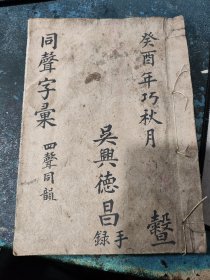 癸酉年巧秋月
吳興德昌手錄
同聲字彙 四聲同韻